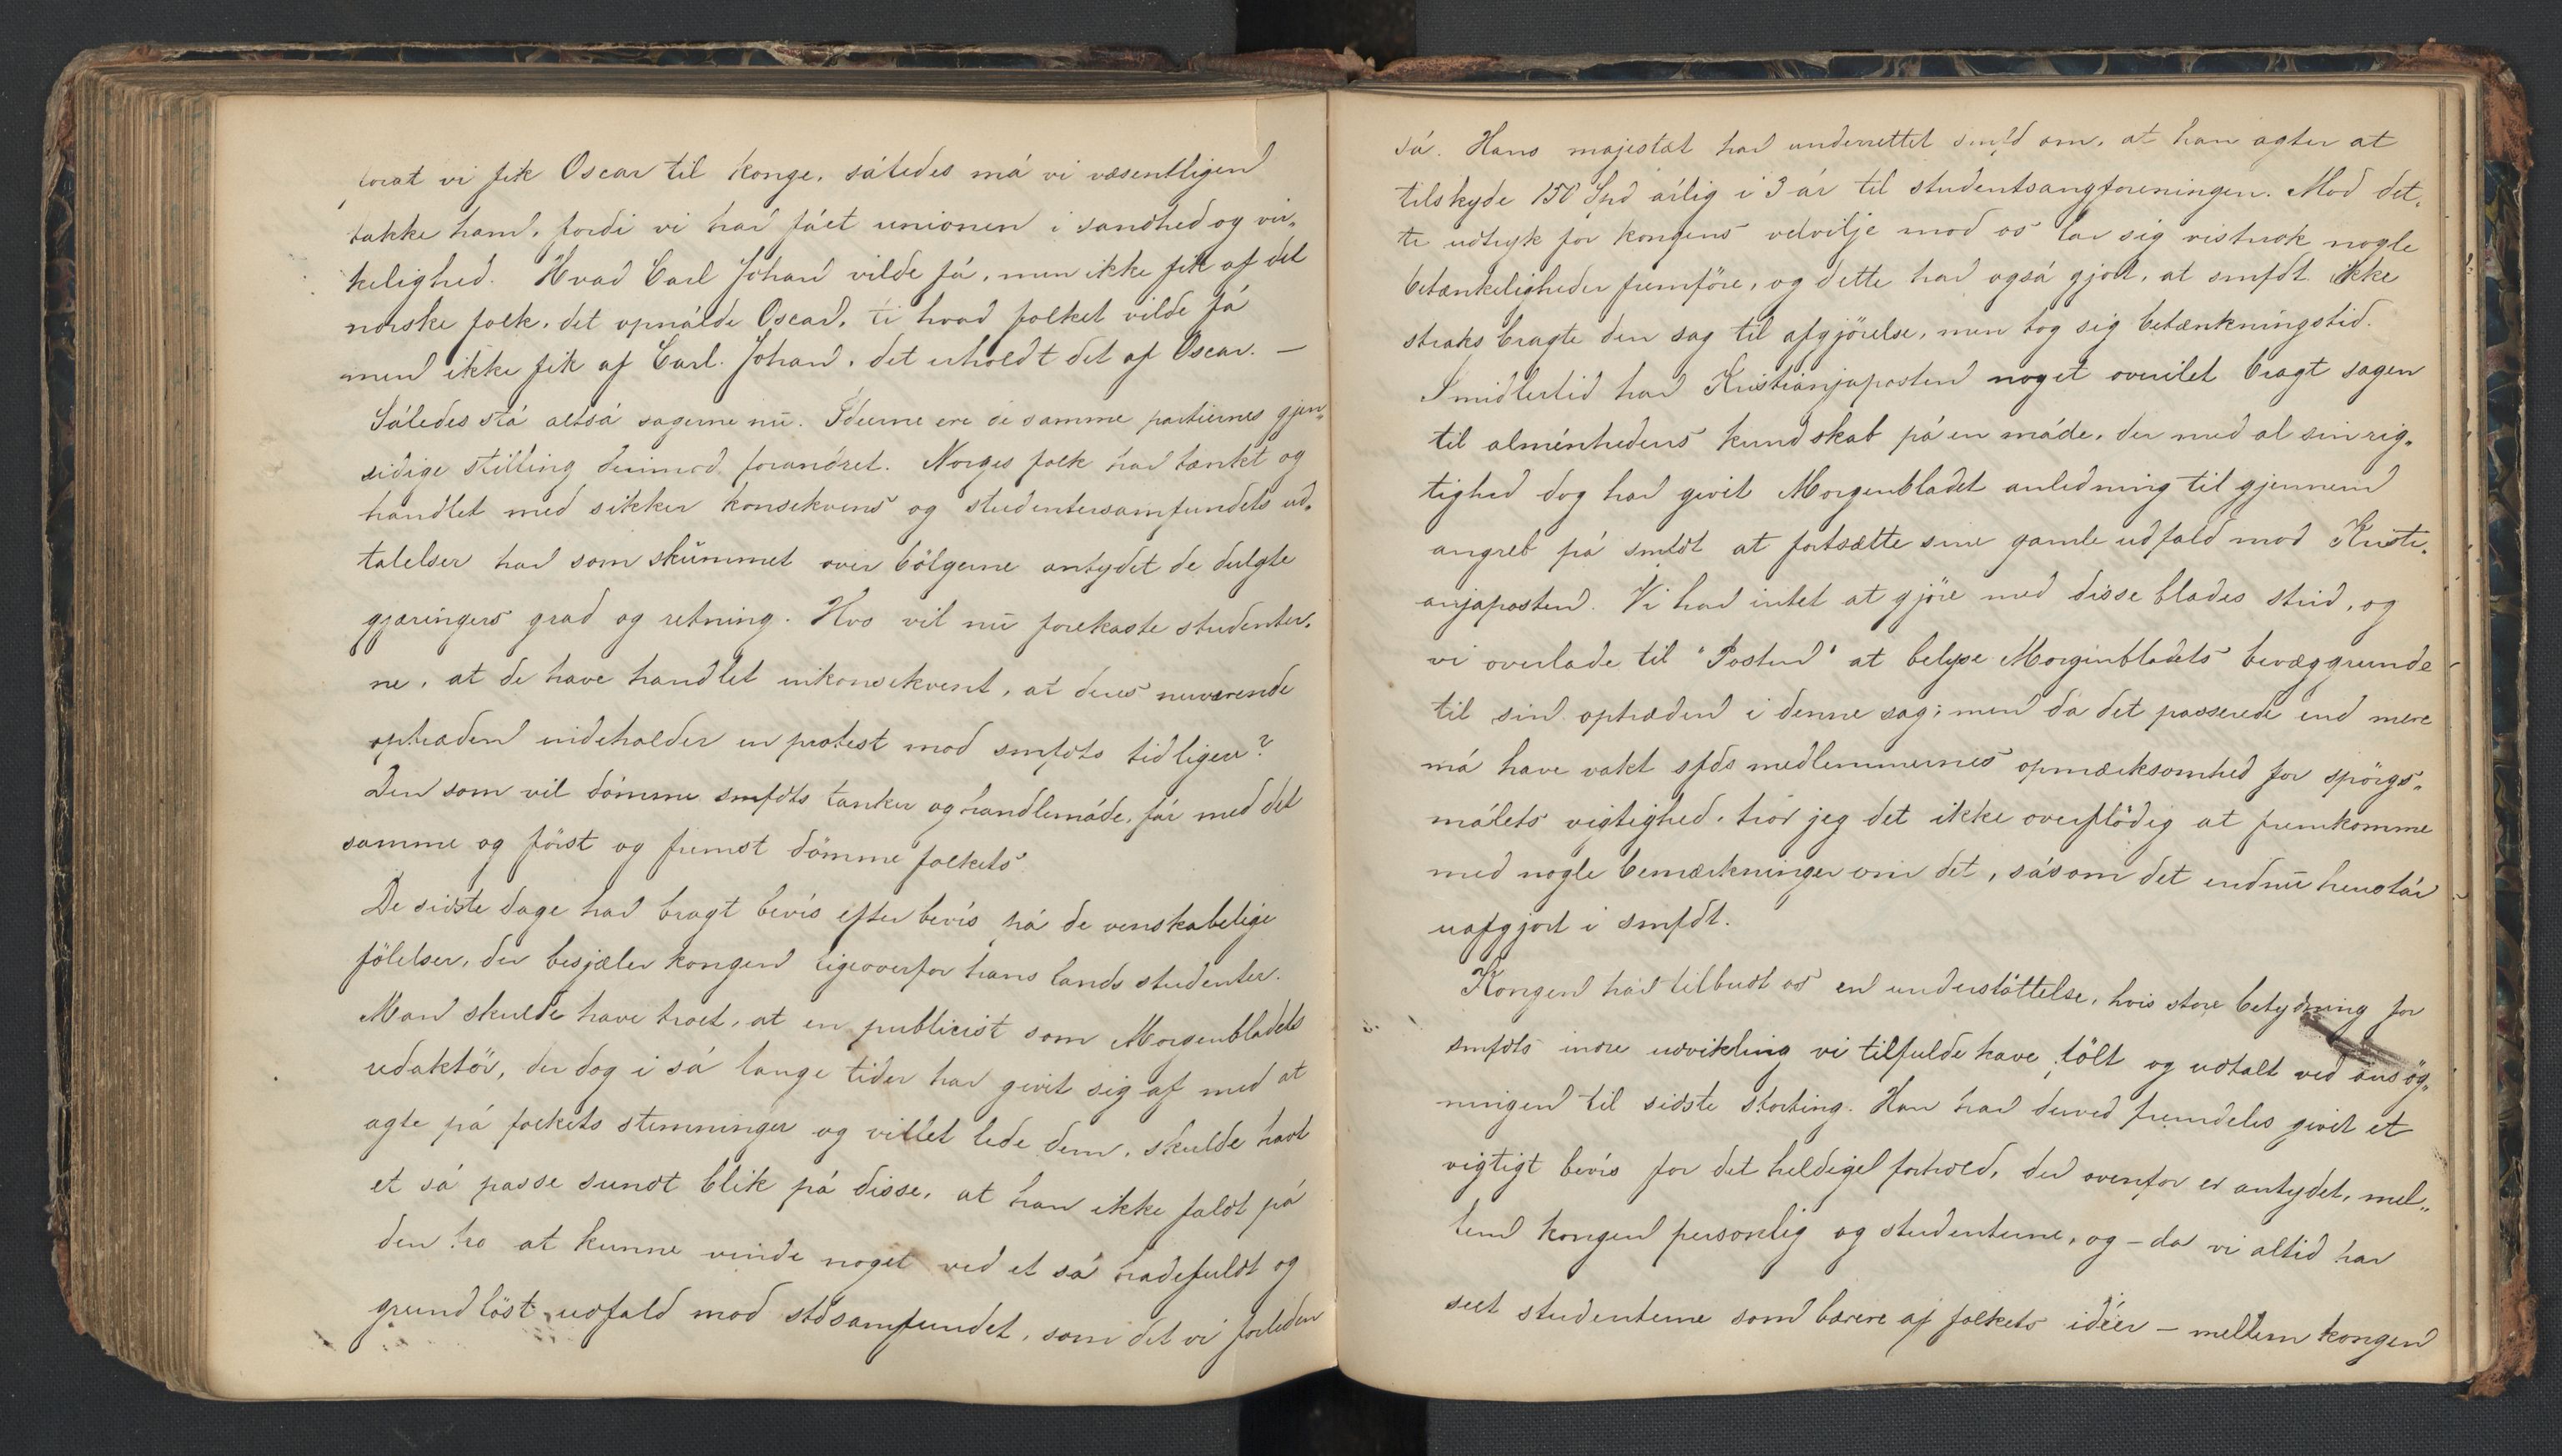 forat vi fik Oscar til konge, således må vi væsentligen
takke ham, fordi vi har fået unionen i sandhed og vir-
kelighed. Hvad Carl Johan vilde få, men ikke fik af det
norske folk, det opnålde Oscar, ti hvad folket vilde få
men ikke fik af Carl. Johan, det erholdt det af Oscar. —
Således stå altså sagerne nu. Ideerne ere de samme partiernes gjen-
sidige stilling derimod forandret. Norges folk har tænkt og
handlet med sikker konsekvens og studentersamfundets ud-
talelser har som skummet over bölgerne antydet de dulgte
gjæringers grad og retning. Hvo vil nu forekaste studenter-
ne, at de have handlet inkonsekvent, at deres nuværende
optræden indeholder en protest mod smfdts tidligere?
Den som vil dömme smfdts tanker og handlemåde, får med det
samme og först og fremst dömme folkets.
De sidste dage har bragt bevis efter bevis på de venskabelige
fölelser, der besjæler kongen ligeoverfor hans lands studenter.
Man skulde have troet, at en publicist som Morgenbladets
redaktör, der dog i så lange tider har givet sig af med at
agte på folkets stemninger og villet lede dem, skulde havt
et så passe sundt blik på disse, at han ikke faldt på
den tro at kunne vinde noget ved et så hadefuldt og
grundlöst udfald mod stdsamfundet, som det vi forleden
så. Hans majestæt har underrettet smfd om, at han agter at
tilskyde 150 Spd årlig i 3 år til studentsangforeningen. Mod det-
te udtryk for kongens velvilje mod os lar sig vistnok nogle
betænkeligheder fremföre, og dette har også gjort, at smfdt. ikke
straks bragte den sag til afgjörelse, men tog sig betænkningstid.
Imidlertid har Kristianjaposten noget overilet bragt sagen
til alménhedens kundskab på en måde, der med al sin rig-
tighed dog har givet Morgenbladet anledning til gjennem
angreb på smfdt at fortsætte sine gamle udfald mod Kristi-
anjaposten. Vi har intet at gjöre med disse blades strid, og
vi overlade til "Posten" at belyse Morgenbladets bevæggrunde
til sin optræden i denne sag; men da det passerede end mere
må have vakt sfds medlemmernes opmærksomhed for spörgs-
målets vigtighed, tror jeg det ikke overflödig at fremkomme
med nogle bemærkninger om det, såsom det endnu henstår
uafgjort i smfdt.
Kongen har tilbudt os en understöttelse, hvis store betydning for
smfdts indre udvikling vi tilfulde have fölt og udtalt ved ansög-
ningen til sidste storting. Han har derved fremdeles givet et
vigtigt bevis for det heldige forhold, der ovenfor er antydet, mel-
lem kongen personlig og studenterne, og – da vi altid har
seet studenterne som bærere af folkets idéer – mellem kongen